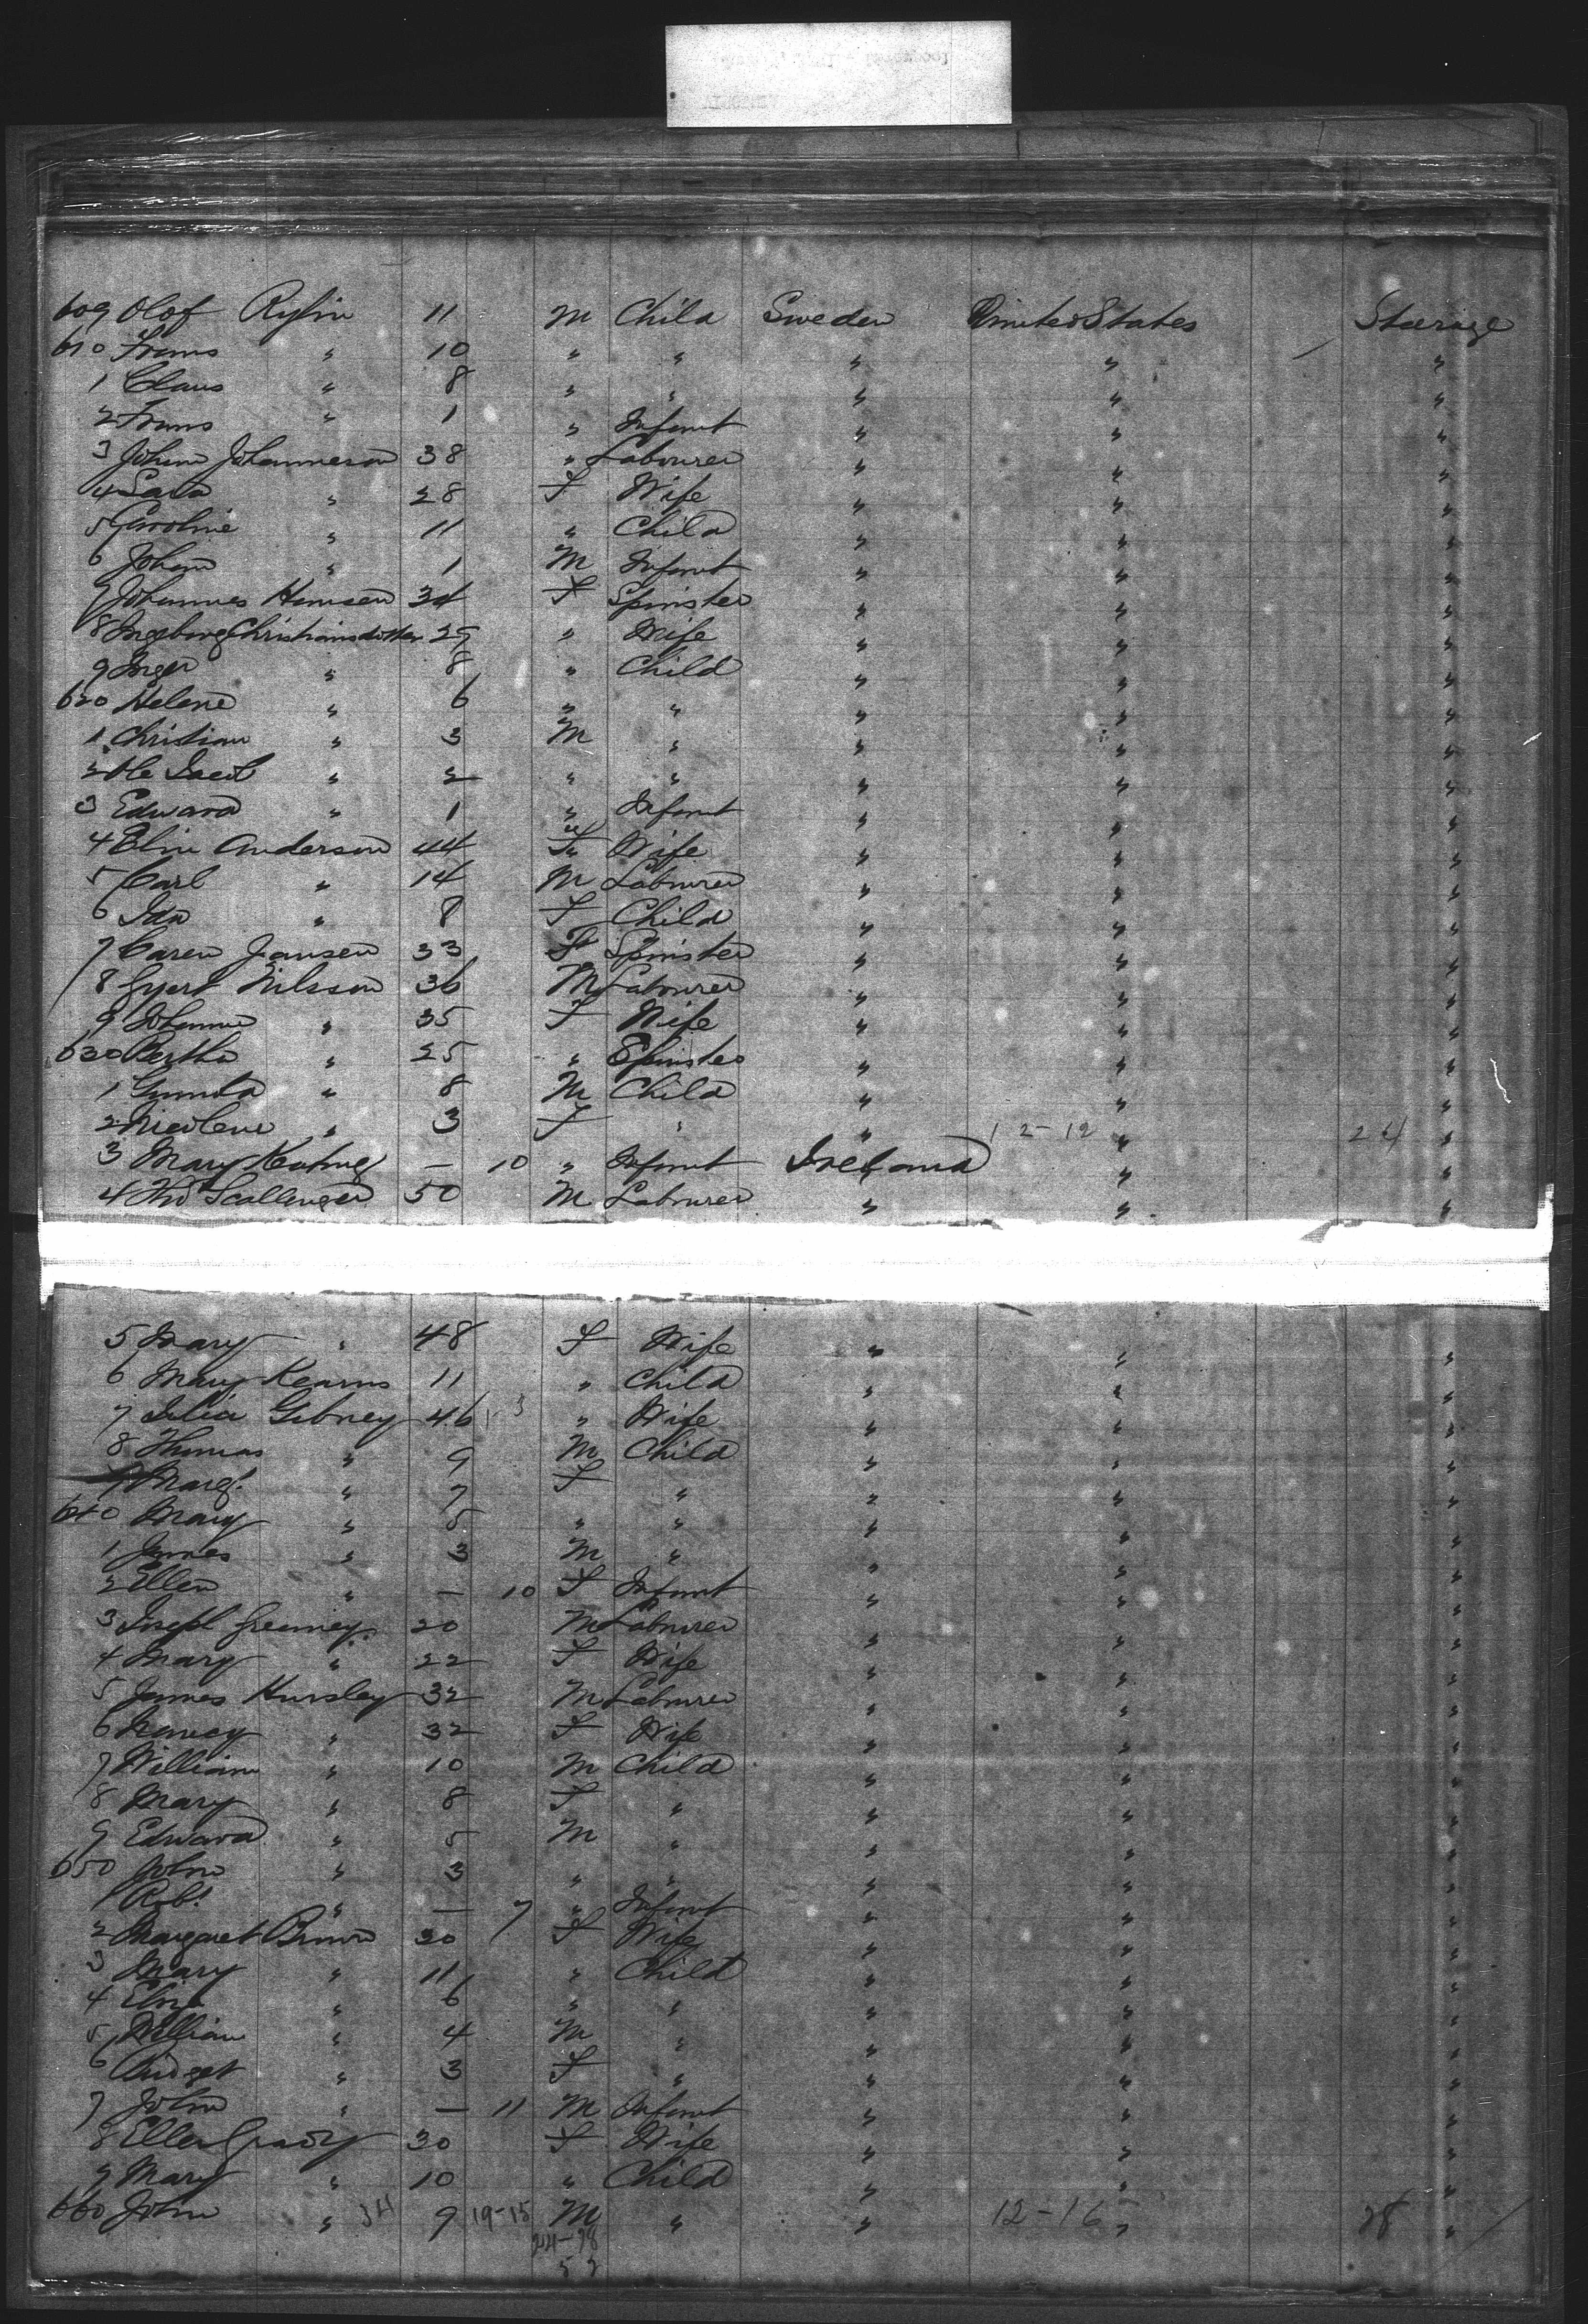 609 Olof Rylin 11 M Child Sweden United States Steerage
610 Frans " 10 " " " " "
1 Claus " 8 " " " " "
2 Frans " 1 " Infant " " "
3 Johan Johanneson 38 " Labourer " " "
4 Sara " 28 F Wife " " "
5 Caroline " 11 " Child " " "
6 Johan " 1 M Infant " " "
7 Johannes Hansen 34 F Spinster " " "
8 Ingeborg Christiansdotter 29 " Wife " " "
9 Inger " 8 " Child " " "
620 Helene " 6 " " " " "
1 Christian " 3 M " " " "
2 Ole " 2 " " " " "
3 Edward " 1 " Infant " " "
4 Elin Anderson 44 F Wife " " "
5 Carl " 14 M Labourer " " "
6 Ida " 8 F Child " " "
7 Caren Jansen 33 F Spinster " " "
8 Nilsson 36 M Labourer " " "
9 Johanne " 35 F Wife " " "
630 Bertha " 25 " Spinster " " "
1 Gunda " 8 M Child " " "
2 " 3 F " " 12-12 " 24 "
3 Mary - 10 " Infant Ireland " "
4 Thos Scallenger 50 M Labourer " " "
5 Mary " 48 F Wife " " "
6 Mary Kearns 11 " Child " " "
7 Gibney 46 " Wife " " "
8 Thomas " 9 M Child " " "
9 Margt " 7 F " " " "
640 Mary " 5 " " " " "
1 James " 3 M " " " "
2 Ellen " - 10 F Infant " " "
3 Joseph 20 M Labourer " " "
4 Mary " 22 F Wife " " "
5 James Hursley 32 M Labourer " " "
6 Nancy " 32 F Wife " " "
7 William " 10 M Child " " "
8 Mary " 8 F " " " "
9 Edward " 5 M " " " "
650 John " 3 " " " " "
1 Robt " - 7 " Infant " " "
2 Margaret Brown 30 F Wife " " "
3 Mary " 11 " Child " " "
4 Eliza " 6 " " " " "
5 William " 4 M " " " "
6 Bridget " 3 F " " " "
7 John " - 11 M Infant " " "
8 Ellen Grady 30 F Wife " " "
9 Mary " 10 " Child " " "
660 John " 34 9 19-15 M " " 12-16 " 28 "
24-28
52